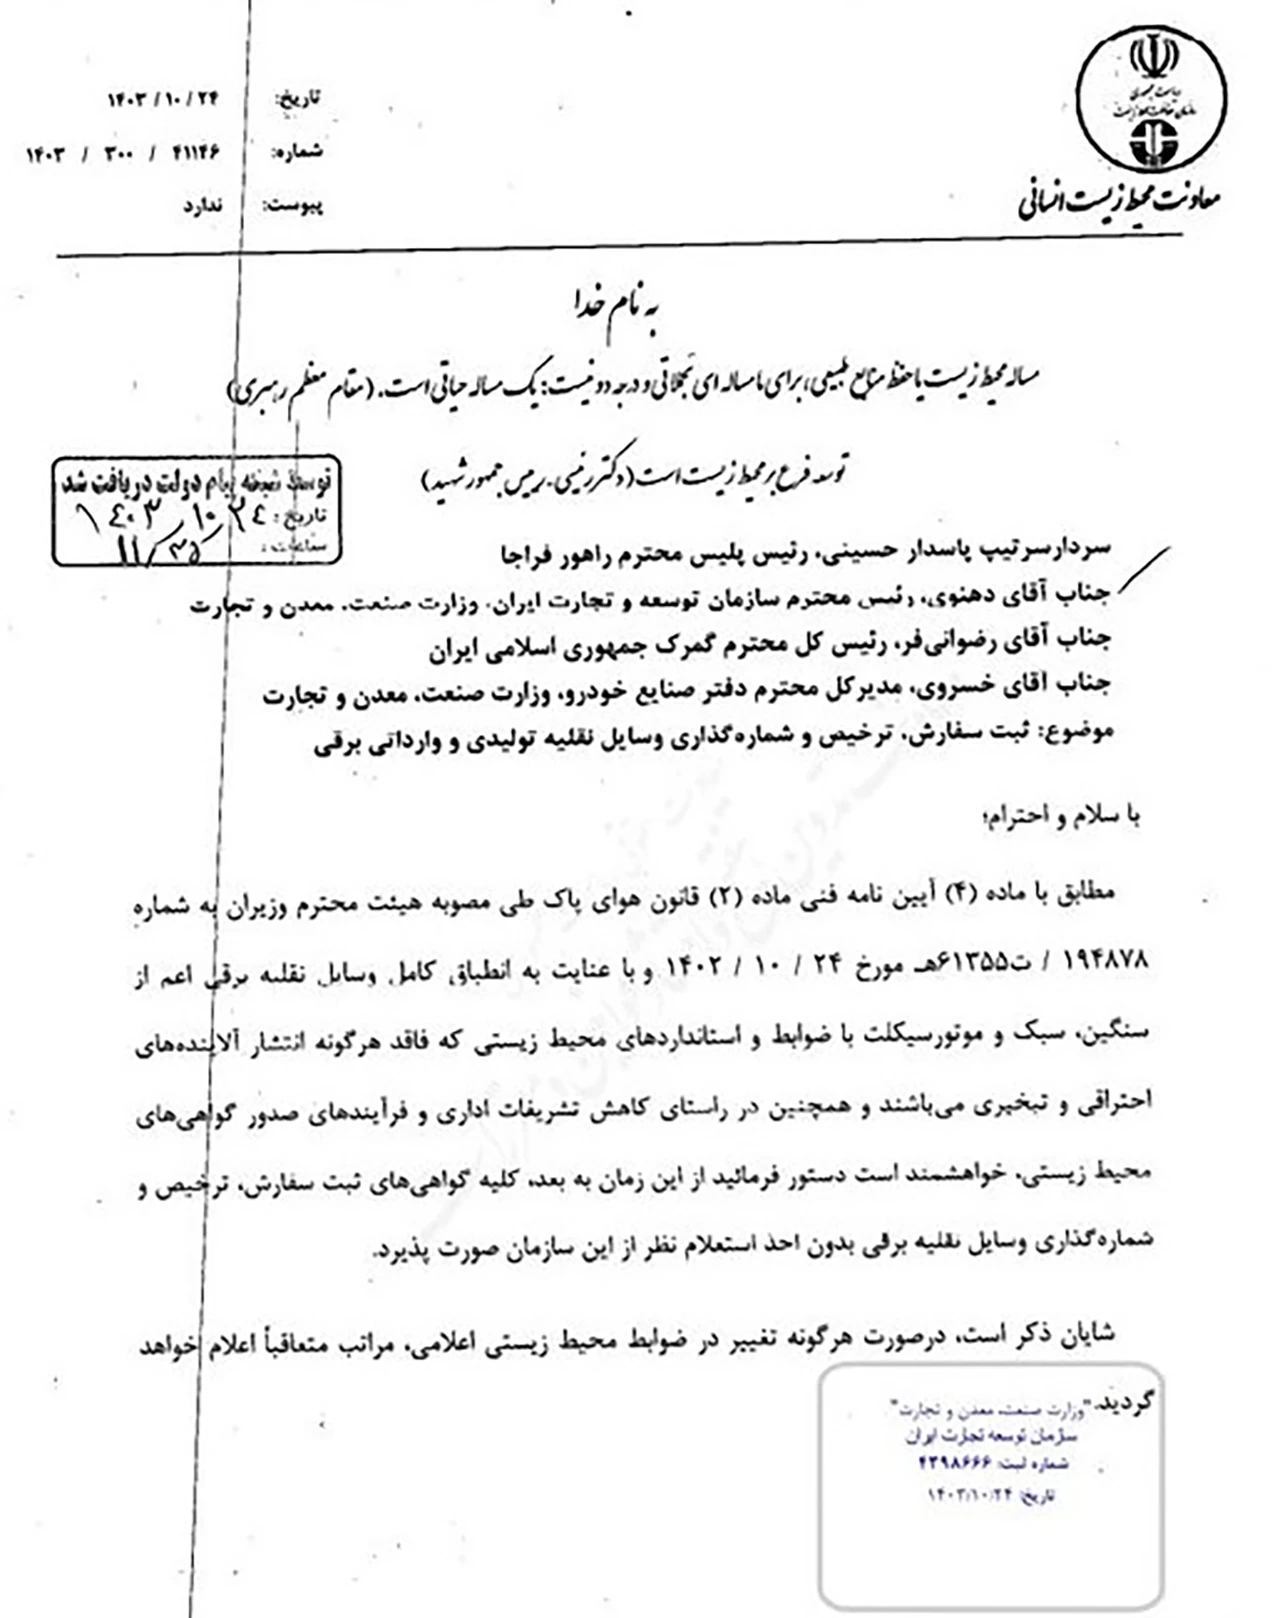 ریاست جمهوری
سازمان حفاظت محیط زیست
معاونت محیط زیست انسانی
تاریخ: ۱۴۰۳/۱۰/۲۴
شماره: ۴۱۱۴۶ / ۳۰۰ / ۱۴۰۳
پیوست: ندارد
به نام خدا
مساله محیط زیست یا حفظ منابع طبیعی، برای ما مساله ای تجملاتی و درجه دو نیست: یک مساله حیاتی است. (مقام معظم رهبری)
توسعه فرع بر محیط زیست است (دکتر رئیسی، رییس جمهور شهید)
توسط شبکه پیام دولت دریافت شد
تاریخ: ۱۴۰۳/۱۰/۲۴
ساعت: ۱۱/۳۵
سردارسرتیپ پاسدار حسینی، رئیس پلیس محترم راهور فراجا
جناب آقای دهنوی، رئیس محترم سازمان توسعه و تجارت ایران، وزارت صنعت، معدن و تجارت
جناب آقای رضوانی‌فر، رئیس کل محترم گمرک جمهوری اسلامی ایران
جناب آقای خسروی، مدیرکل محترم دفتر صنایع خودرو، وزارت صنعت، معدن و تجارت
موضوع: ثبت سفارش، ترخیص و شماره‌گذاری وسایل نقلیه تولیدی و وارداتی برقی
با سلام و احترام؛
مطابق با ماده (۴) آیین نامه فنی ماده (۲) قانون هوای پاک طی مصوبه هیئت محترم وزیران به شماره
۱۹۴۸۷۸ / ت۶۱۳۵۵هـ مورخ ۲۴ / ۱۰ / ۱۴۰۲ و با عنایت به انطباق کامل وسایل نقلیه برقی اعم از
سنگین، سبک و موتورسیکلت با ضوابط و استانداردهای محیط زیستی که فاقد هرگونه انتشار آلاینده‌های
احتراقی و تبخیری می‌باشند و همچنین در راستای کاهش تشریفات اداری و فرآیندهای صدور گواهی‌های
محیط زیستی، خواهشمند است دستور فرمائید از این زمان به بعد، کلیه گواهی‌های ثبت سفارش، ترخیص و
شماره‌گذاری وسایل نقلیه برقی بدون اخذ استعلام نظر از این سازمان صورت پذیرد.
شایان ذکر است، درصورت هرگونه تغییر در ضوابط محیط زیستی اعلامی، مراتب متعاقباً اعلام خواهد
گردید.
"وزارت صنعت، معدن و تجارت"
سازمان توسعه تجارت ایران
شماره ثبت: ۴۳۹۸۶۶۶
تاریخ: ۱۴۰۳/۱۰/۲۴